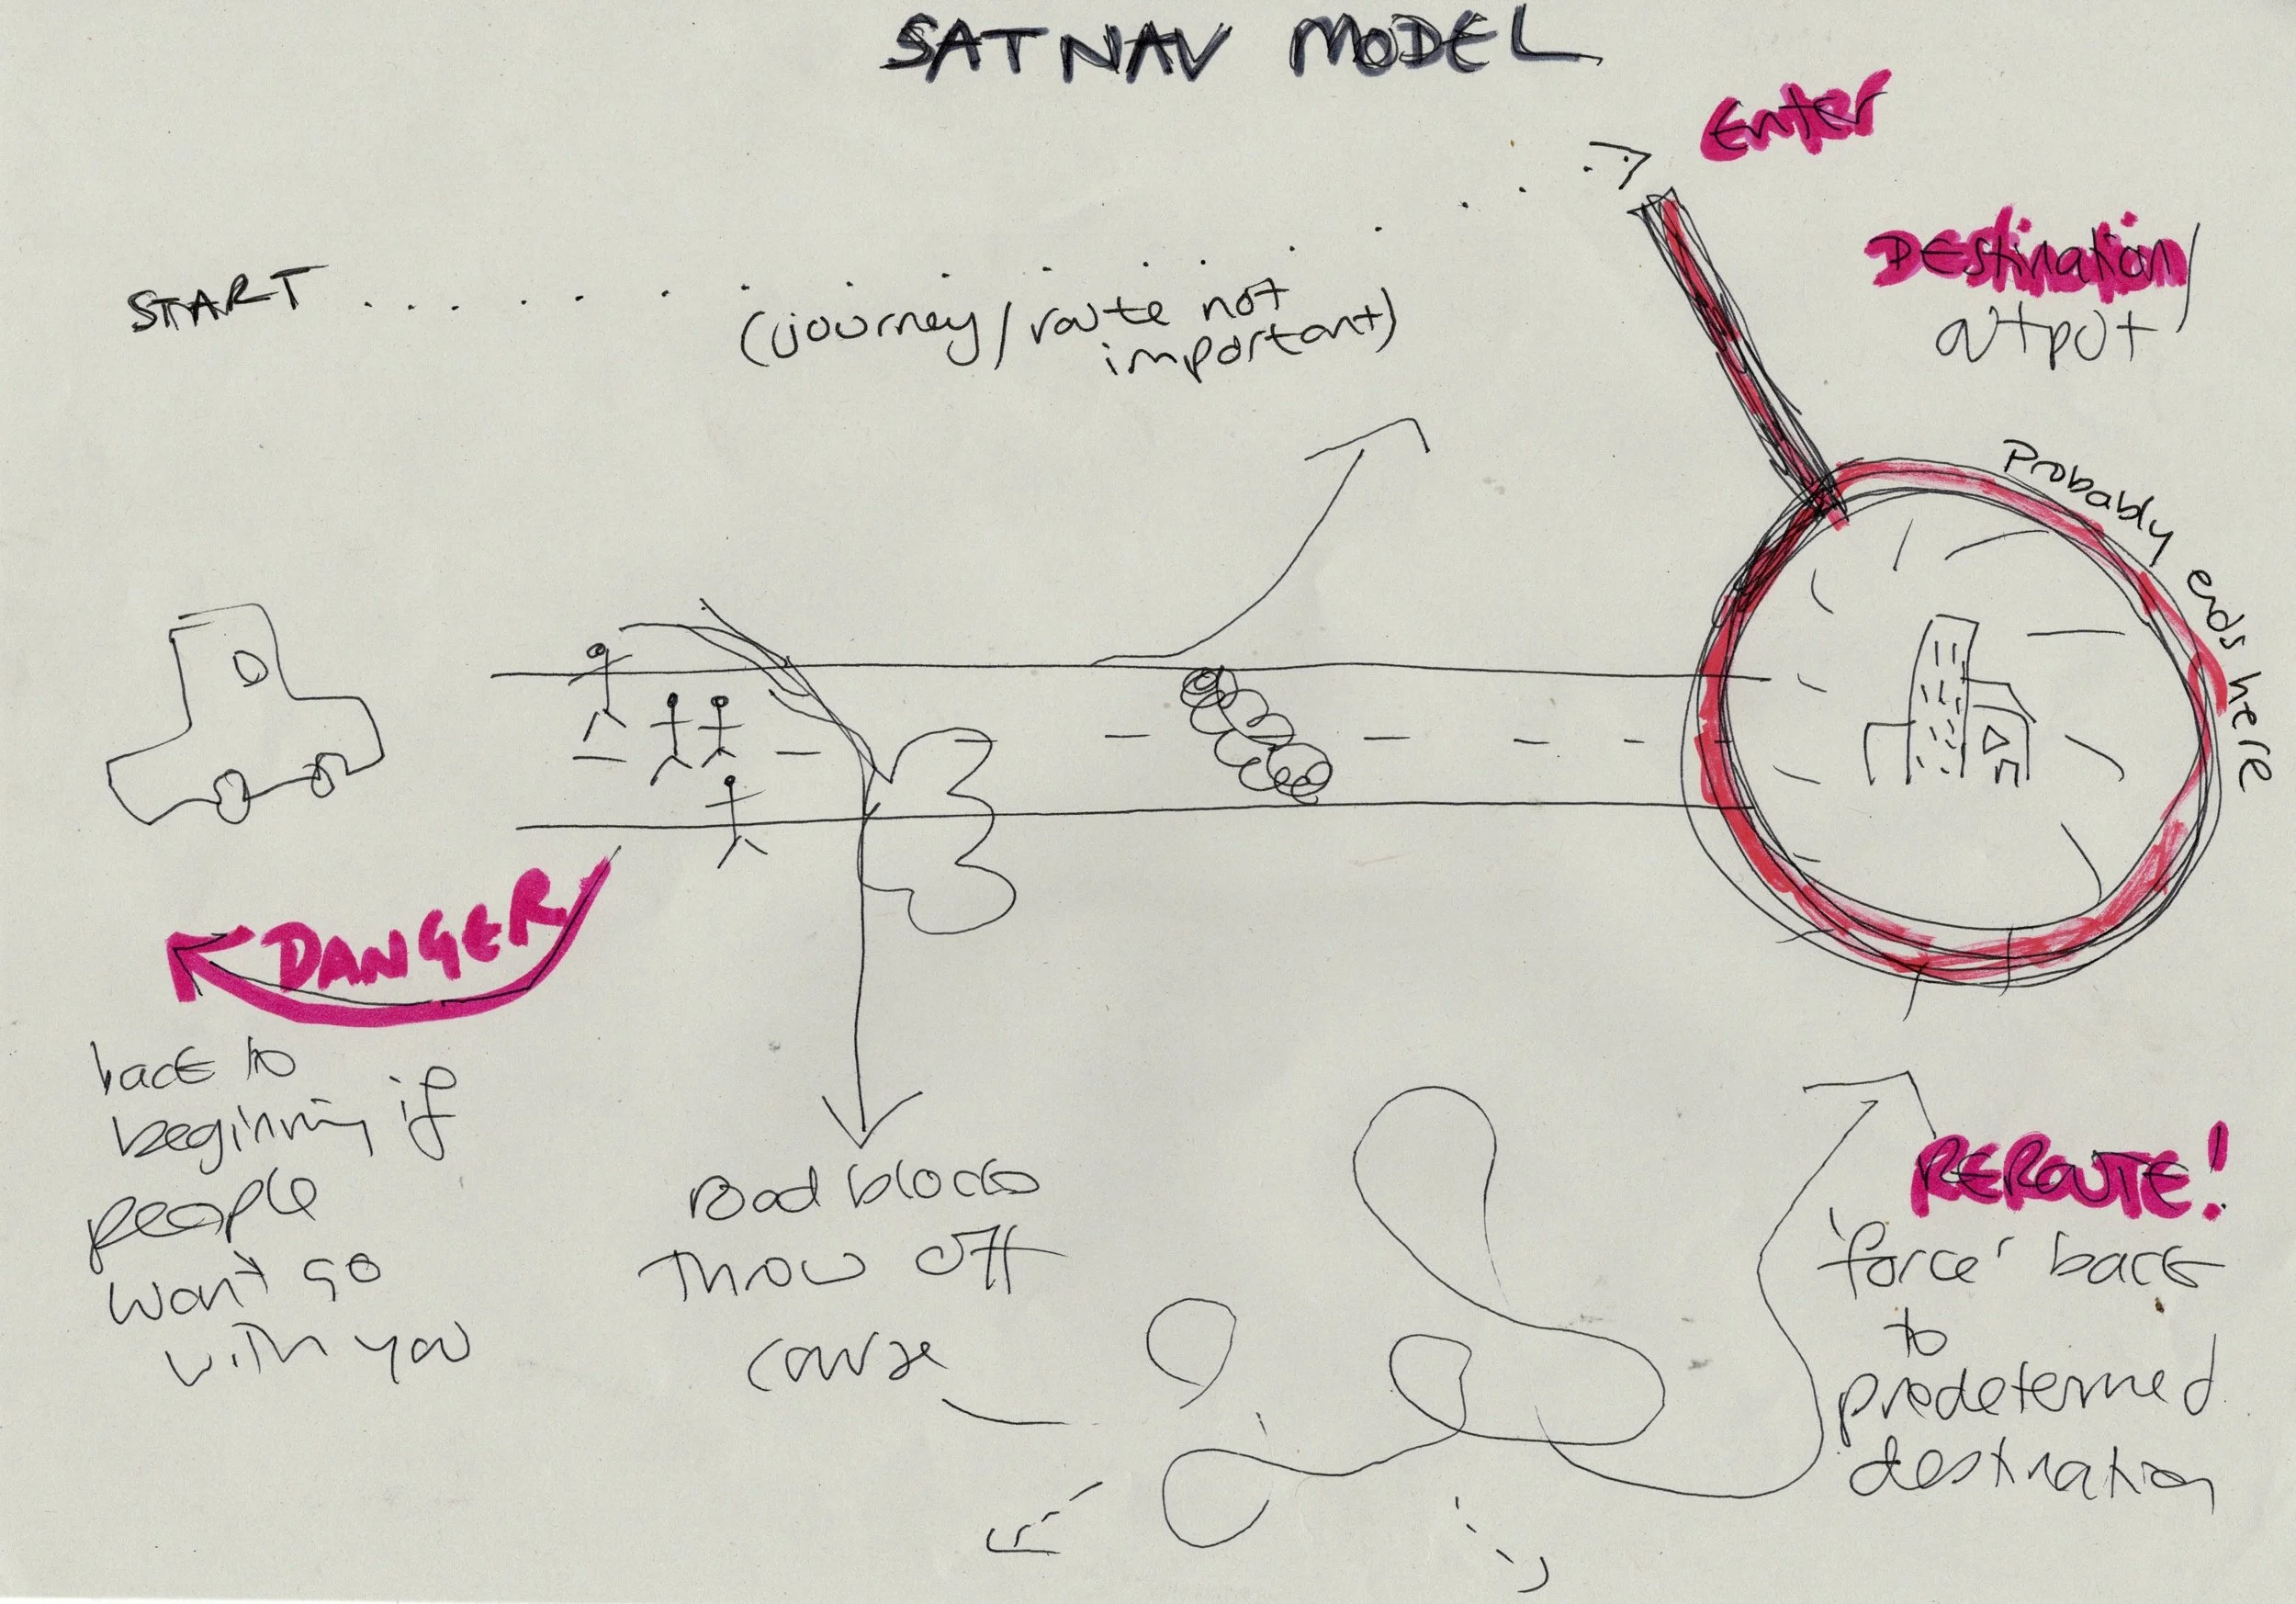 SATNAV MODEL
Enter
DESTINATION/
output
START
(journey/route not
important)
Probably ends here
DANGER
back to
beginning if
people
wont go
with you
Road blocks
throw off
course
REROUTE!
'force' back
to
predetermined
destination